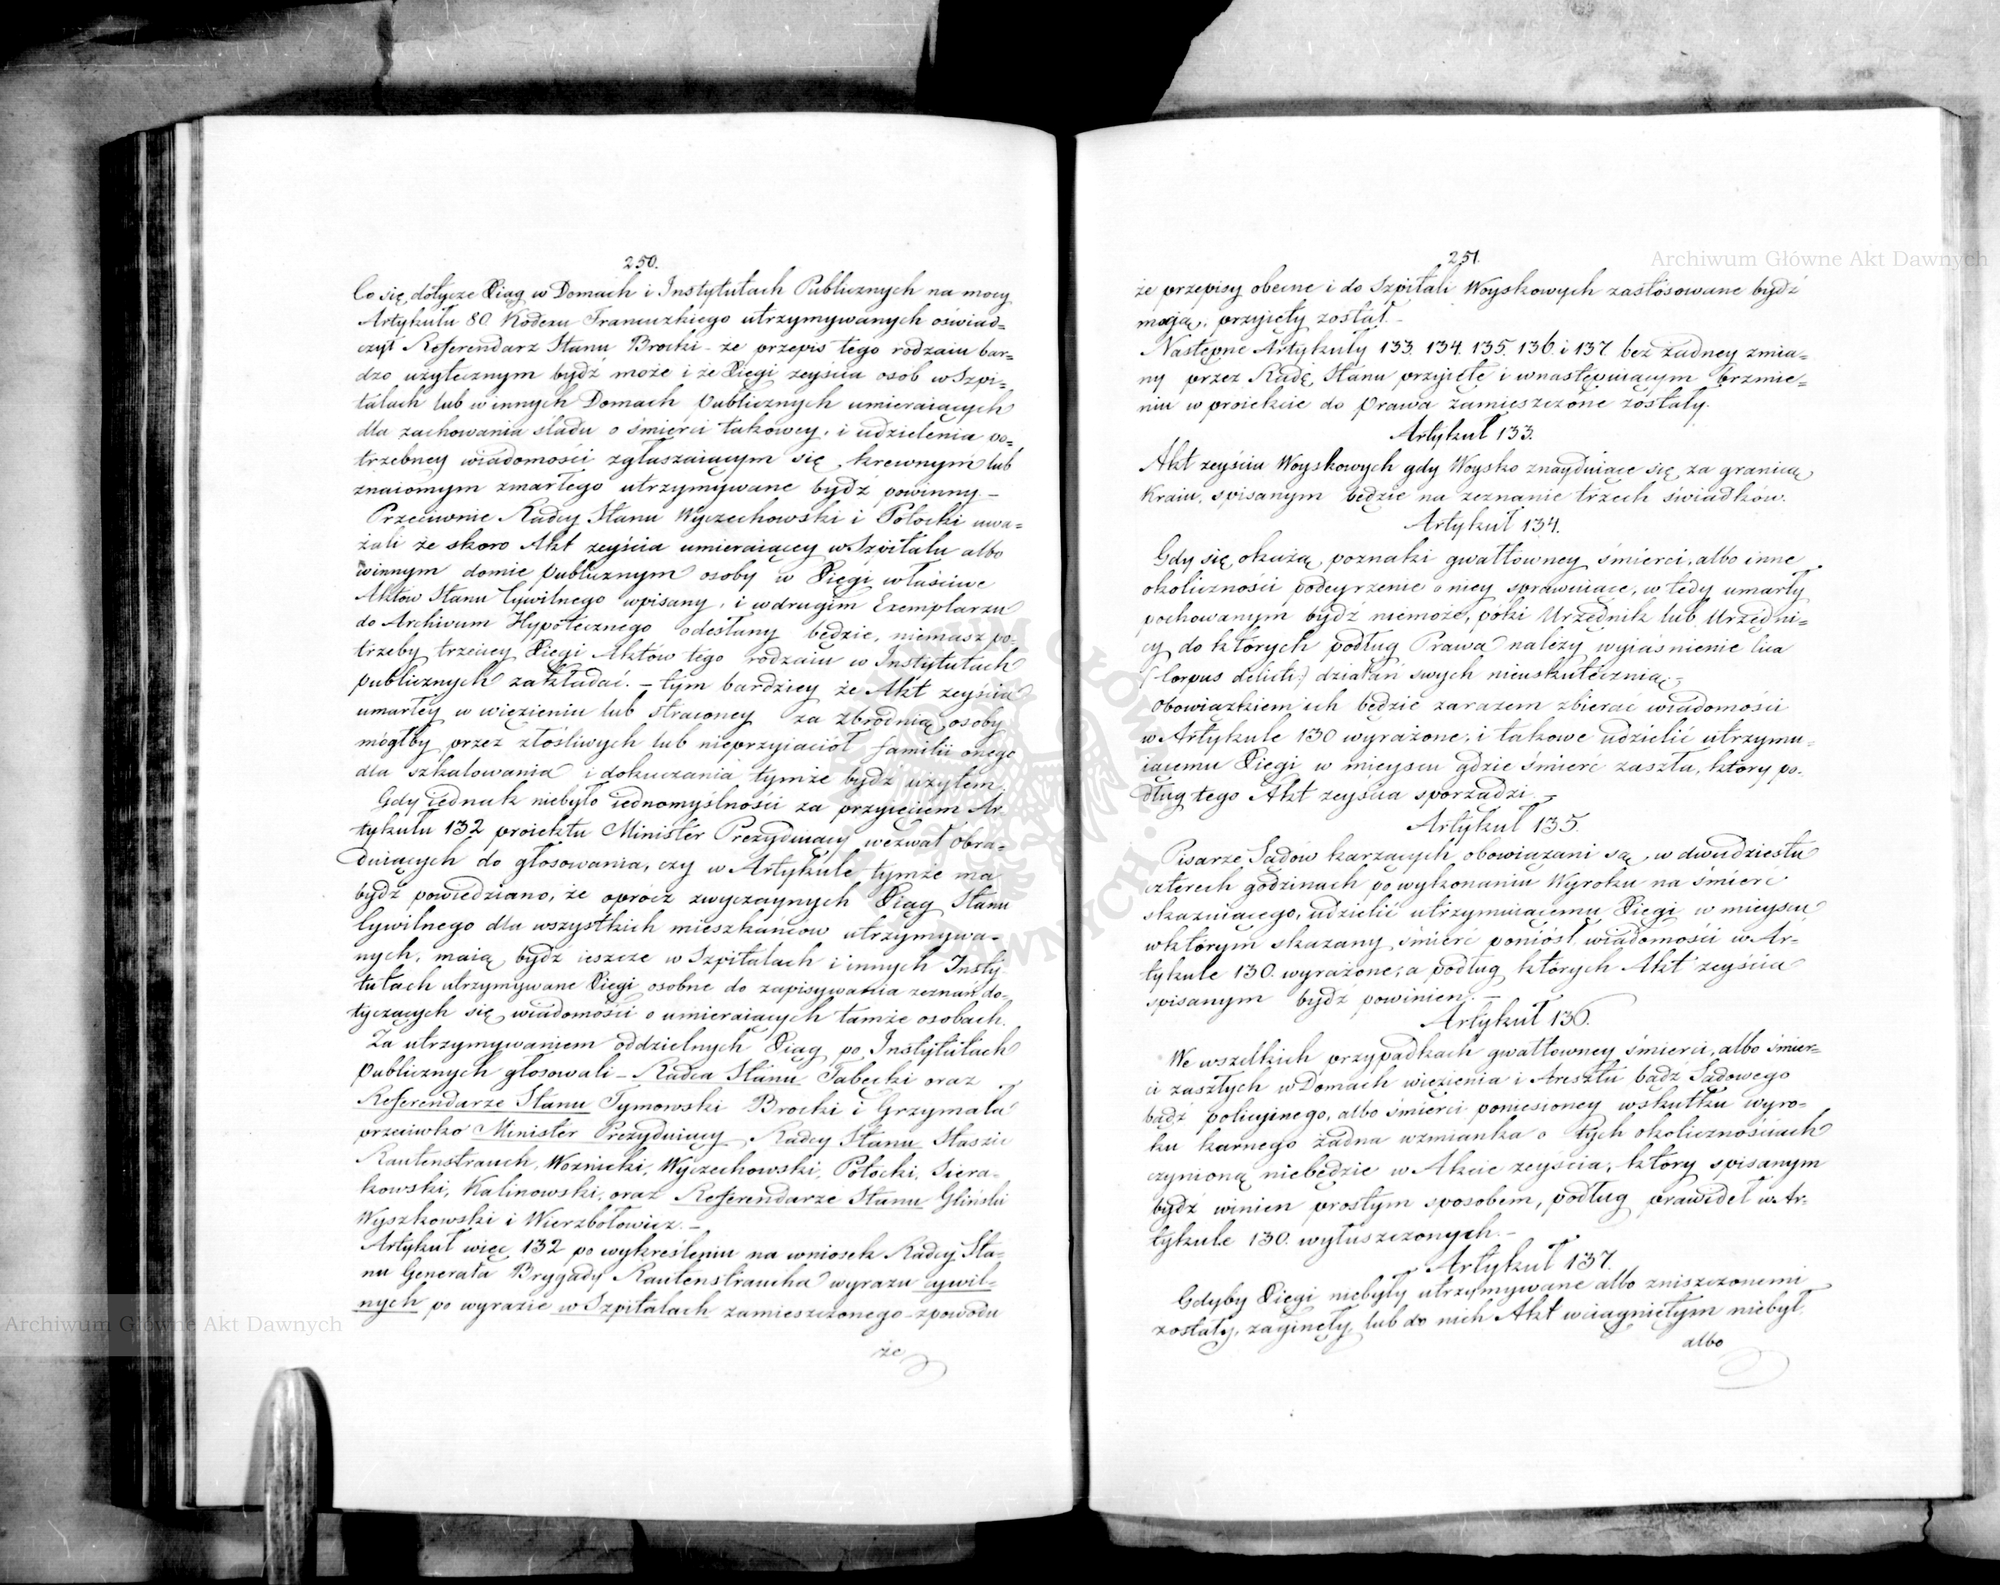 250.
Co się dotycze Xiąg w Domach i Instytutach Publicznych na mocy
Artykułu 80 Kodexu Francuzkiego utrzymywanych oświad=
czył Referendarz Stanu Brocki – że przepis tego rodzaiu bar=
dzo użytecznym bydź może i że Xięgi zeyścia osob w Szpi=
talach lub w innych Domach publicznych umieraiących
dla zachowania śladu o śmierci takowey, i udzielenia po=
trzebney wiadomości zgłaszaiącym się krewnym lub
znaiomym zmarłego utrzymywane bydź powinny. –
Przeciwnie Radcy Stanu Wyczechowski i Potocki uwa=
żali że skoro Akt zeyścia umieraiącey w Szpitalu albo
w innym domie publicznym osoby w Xięgi właściwe
Aktów Stanu Cywilnego wpisany, i w drugim Exemplarzu
do Archiwum Hypotecznego odesłany będzie, niemasz po=
trzeby trzeciey Xięgi Aktów tego rodzaiu w Instytutach
publicznych zakładać. – tym bardziey że Akt zeyścia
umarłey w więzieniu lub straconey za zbrodnią osoby
mógłby przez złośliwych lub nieprzyiaciół familii onego
dla szkalowania i dokuczania tymże bydź użytem.
Gdy iednak niebyło iednomyślności za przyięciem Ar=
tykułu 132 proiektu Minister Prezyduiący wezwał obra=
duiących do głosowania, czy w Artykule tymże ma
bydź powiedziano, że oprócz zwyczaynych Xiąg Stanu
Cywilnego dla wszystkich mieszkańców utrzymywa=
nych, maią bydź ieszcze w Szpitalach i innych Insty
tutach utrzymywane Xięgi osobne do zapisywania zeznań do=
tyczących się wiadomości o umieraiących tamże osobach.
Za utrzymywaniem oddzielnych Xiąg po Instytutach
publicznych głosowali – Radca Stanu Tabecki oraz
Referendarze Stanu Tymowski Brocki i Grzymała
przeciwko Minister Prezyduiący Radcy Stanu Staszic
Rautenstrauch, Woźnicki, Wyczechowski, Potocki, Siera=
kowski, Kalinowski, oraz Referendarze Stanu Gliński
Wyszkowski i Wierzbołowicz. –
Artykuł więc 132 po wykreśleniu na wniosek Radcy Sta=
nu Generała Brygady Rautenstraucha wyrazu cywil=
nych po wyrazie w Szpitalach zamieszczonego – z powodu
że
251.
że przepisy obecne i do Szpitali Woyskowych zastosowane bydź
maią, przyięty został. –
Następne Artykuły 133. 134. 135. 136. i 137 bez żadney zmia=
ny przez Radę Stanu przyięte i w następuiącym brzmie=
niu w proiekcie do Prawa zamieszczone zostały.
Artykuł 133.
Akt zeyścia Woyskowych gdy Woysko znayduiące się za granicą
Kraiu, spisanym będzie na zeznanie trzech świadków.
Artykuł 134.
Gdy się okażą poznaki gwałtowney śmierci, albo inne
okoliczności podeyrzenie o niey sprawuiące, w tedy umarły
pochowanym bydź niemoże, póki Urzędnik lub Urzędni=
cy do których podług Prawa należy wyiaśnienie lica
(:Corpus delicti:) działań swych nieuskutecznią –
Obowiązkiem ich będzie zarazem zbierać wiadomości
w Artykule 130 wyrażone, i takowe udzielić utrzymu=
iącemu Xięgi w mieyscu gdzie śmierć zaszła, który po=
dług tego Akt zeyścia sporządzi. –
Artykuł 135.
Pisarze Sądów karzących obowiązani są, w dwudziestu
czterech godzinach po wykonaniu Wyroku na śmierć
skazuiącego, udzielić utrzymuiącemu Xięgi w mieyscu
w którym skazany śmierć poniósł wiadomości w Ar=
tykule 130. wyrażone; a podług których Akt zeyścia
spisanym bydź powinien. –
Artykuł 136.
We wszelkich przypadkach gwałtowney śmierci, albo śmier=
ci zaszłych w Domach więzienia i Aresztu bądź Sądowego
bądź policyinego, albo śmierci poniesioney wskutku wyro=
ku karnego żadna wzmianka o tych okolicznościach
czynioną niebędzie w Akcie zeyścia; który spisanym
bydź winien prostym sposobem, podług prawideł w Ar=
tykule 130. wyłuszczonych. –
Artykuł 137.
Gdyby Xięgi niebyły utrzymywane albo zniszczonemi
zostały, zaginęły, lub do nich Akt wciągniętym niebył,
albo
Archiwum Główne Akt Dawnych
Archiwum Główne Akt Dawnych